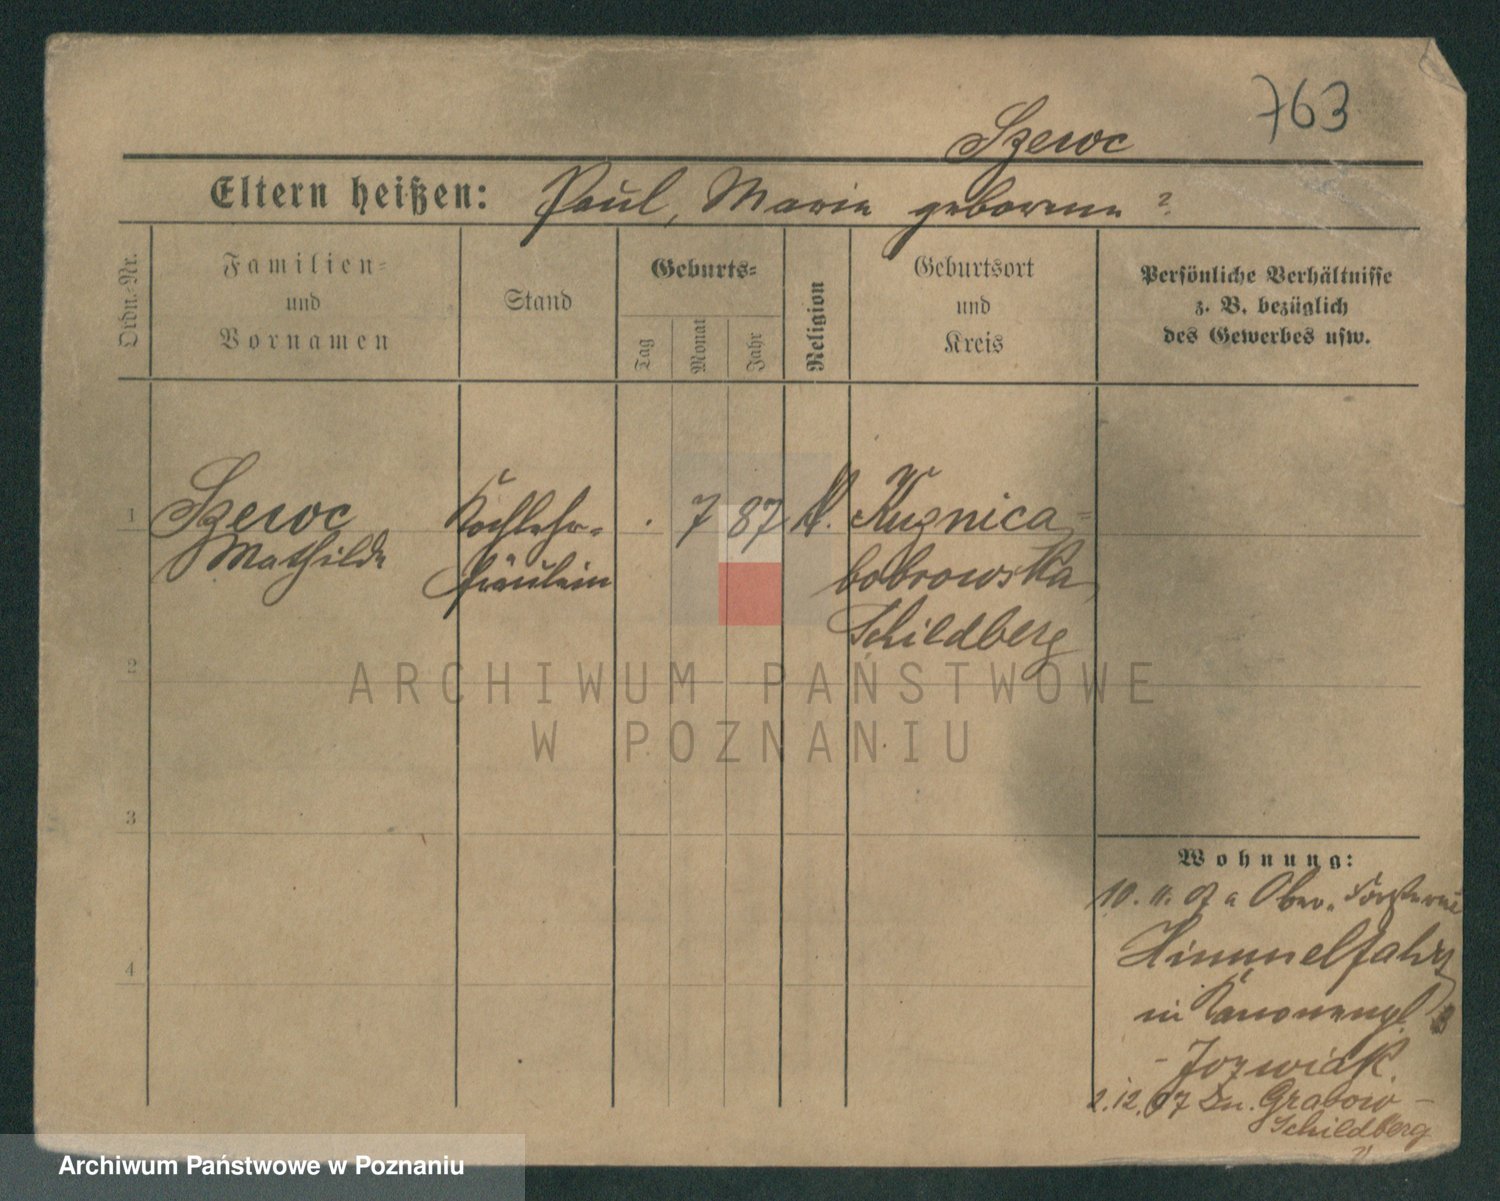 763
Szewc
Eltern heißen: Paul, Marie geborene ?
Ordn.-Nr.
Familien-
und
Vornamen
Stand
Geburts-
Tag
Monat
Jahr
Religion
Geburtsort
und
Kreis
Persönliche Verhältnisse
z. B. bezüglich
des Gewerbes usw.
1
Szewc
Mathilde
Kochlehr-
fräulein
. 7 87
K.
Kuznica-
bobrowska
Schildberg
2
ARCHIWUM PAŃSTWOWE
W POZNANIU
3
4
Wohnung:
10. 11. 07 a Ober-Försterei
Himmelfahrt
in
Jozwiak.
2.12.07 Grabow -
Schildberg
Archiwum Państwowe w Poznaniu